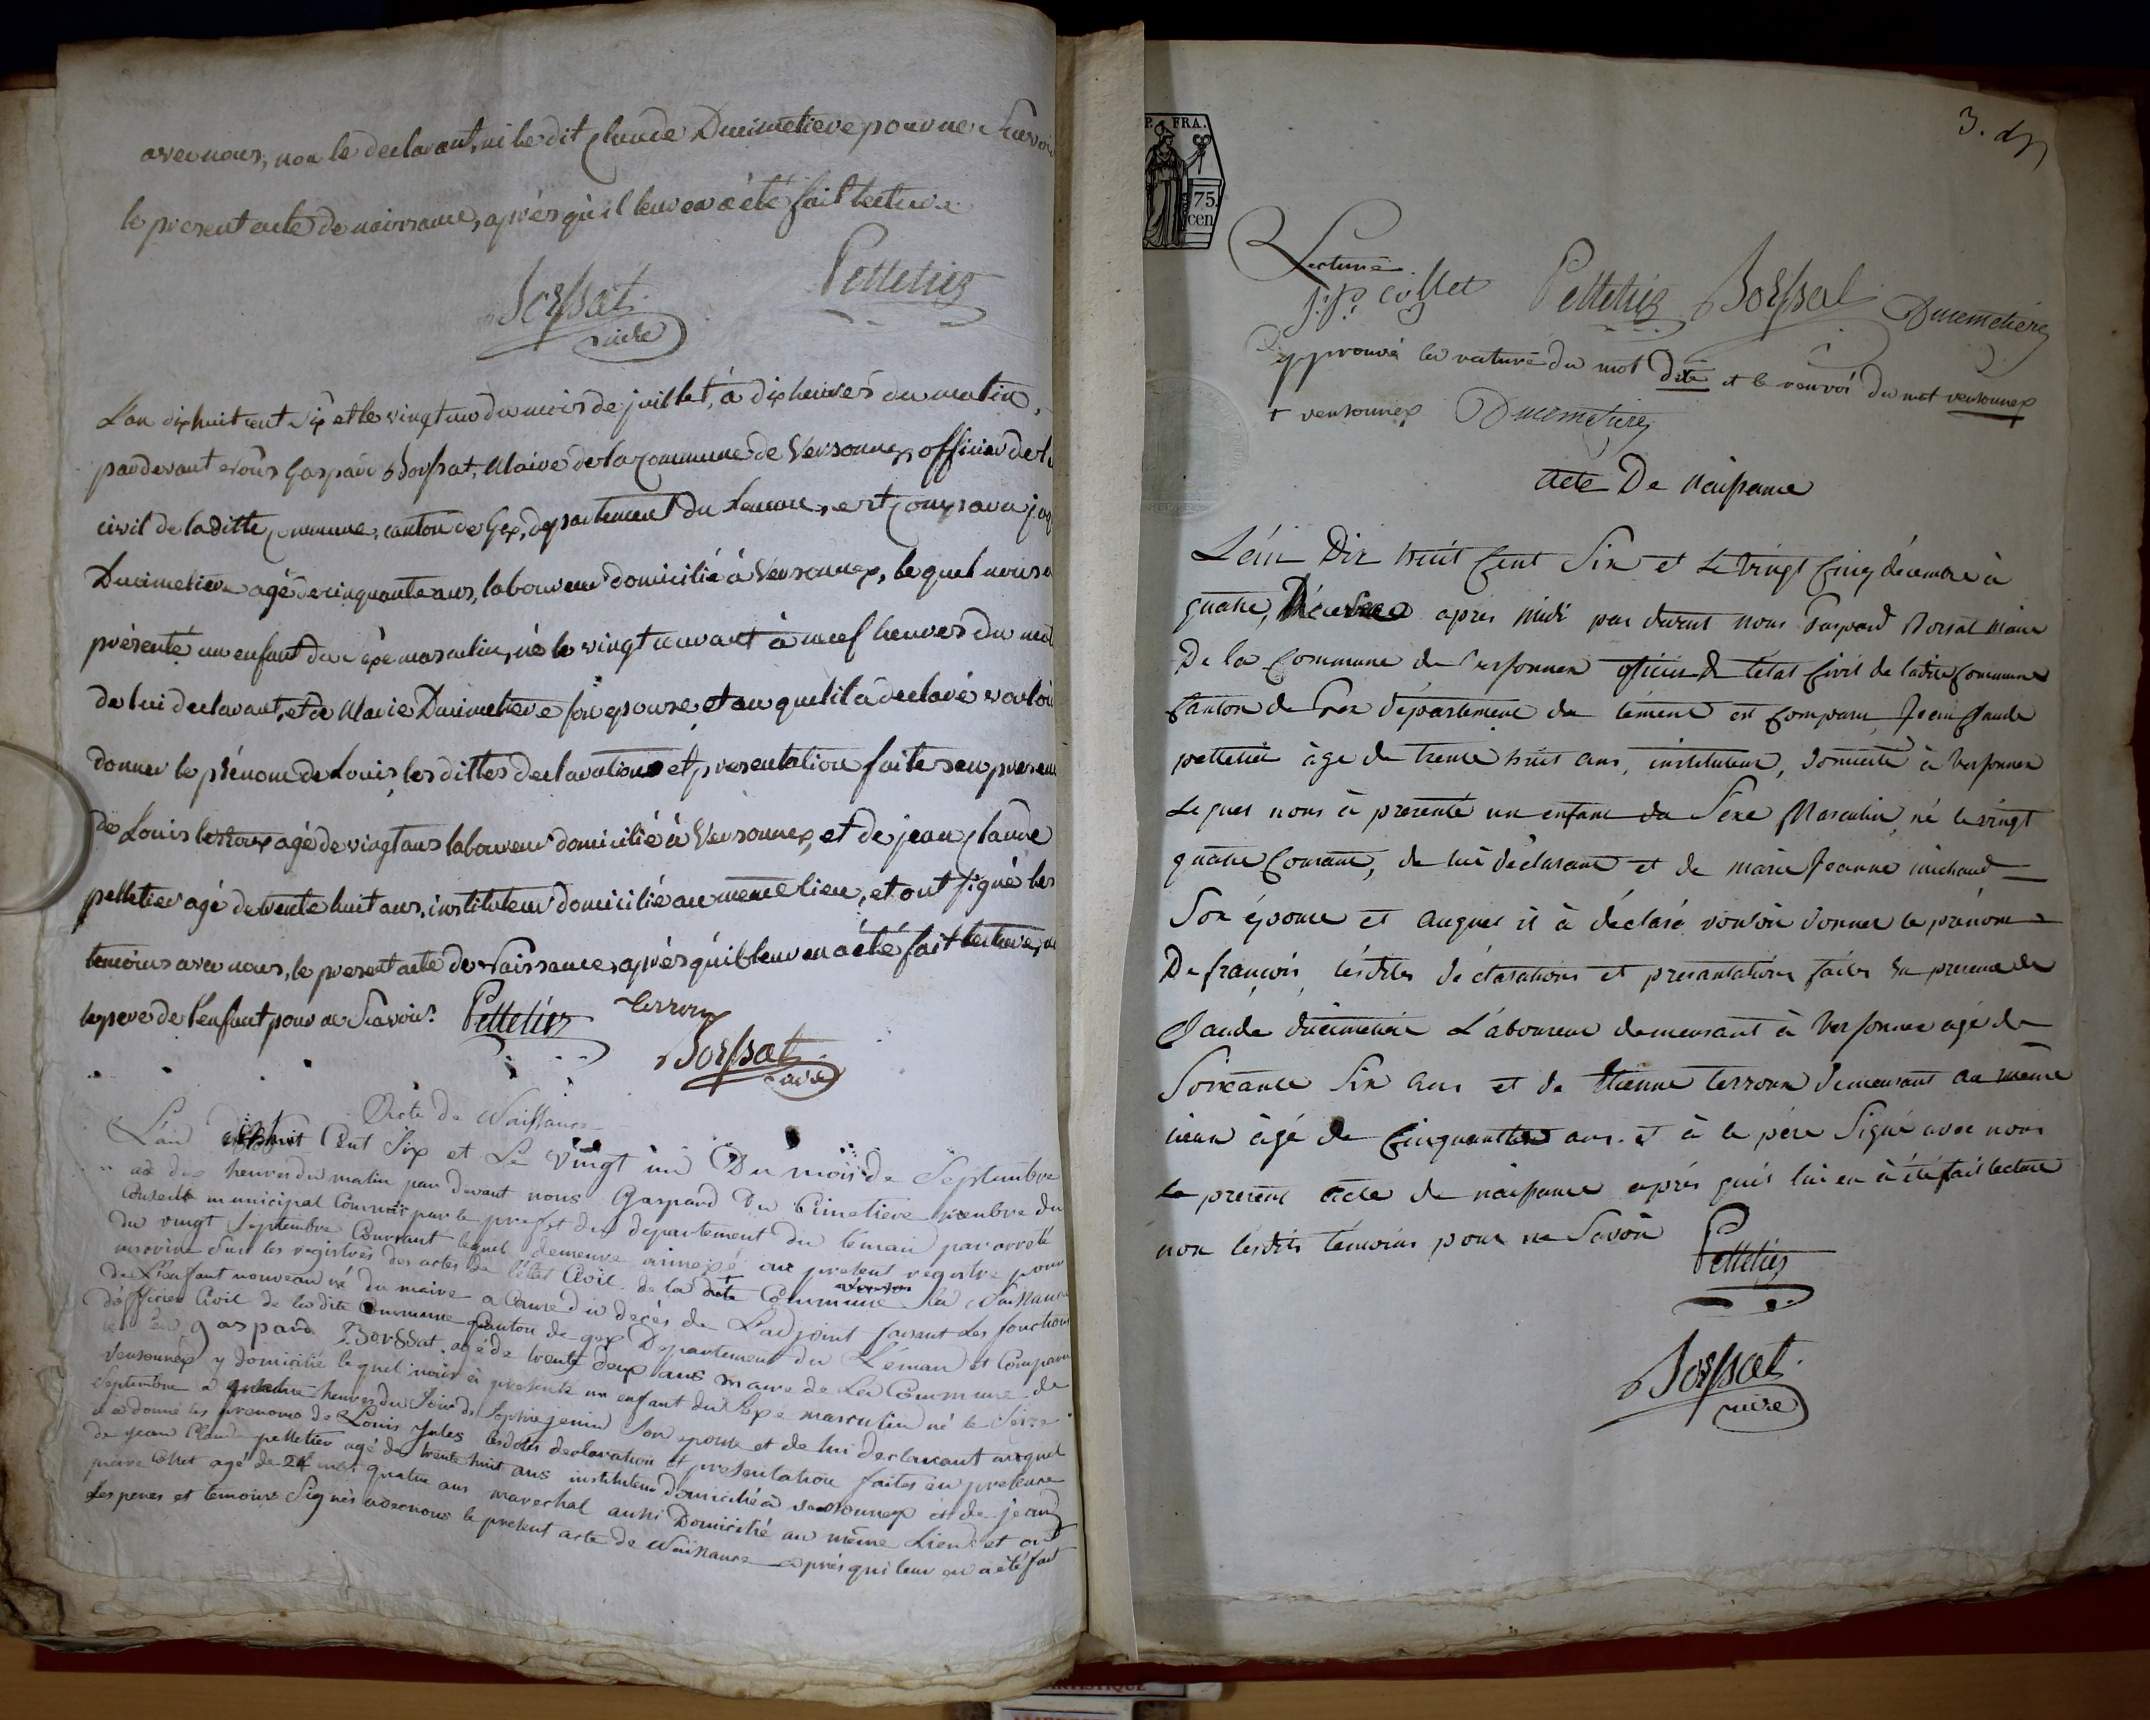 avec nous, non le declarant, ni le dit Claude Ducimetiere pour ne Scavoi
le present acte de naissance, après qu'il leur en a été fait lecture
Borssat
maire
Pelletier
L'an dix huit cent Six et le vingt un du mois de juillet, à dix heures du matin,
pardevant Nous Gaspard Borssat, Maire de la Commune de Versonnex officier de l
civil de la ditte Commune, canton de Gex, departement du Leman, est comparu
Ducimetiere agé de cinquante ans, laboureur domicilié à Versonnex, lequel nous a
présenté un enfant du Sexe masculin, né le vingt courant à neuf heures du mat
de lui declarant, et de Marie Ducimetiere son epouse, et au quel il a declaré vouloi
donner le prénom de Louis, les dittes declarations et presentation faites en presen
de Louis Terroux agé de vingt ans laboureur domicilié à Versonnex, et de jean Claude
pelletier agé de trente huit ans, instituteur domicilié au même lieu, et ont signé les
temoins avec nous, le present acte de Naissance, après qu'il leur en a été fait lecture,
le pere de l'enfant pour ne Scavoir. Pelletier
Terroux
Borssat
maire
Acte de Naissance
L'an dixhuit Cent Six et Le vingt un Du mois de Septembre
a dix heures du matin par devant nous Gaspard Du Cimetiere membre du
Conseil municipal Commis par le prefet du departement du Léman par arreté
du vingt Septembre Courrant lequel demeure annexé au present registre pour
inscrire Sur les registres des actes de l'état Civil de la dite Commune la Naissance
de L'enfant nouveau né du maire a Cause du decés de L'adjoint faisant Les fonction
d'officier Civil de la dite Commune Canton de gex Departement du Léman est Comparu
gaspard Borssat agé de trente deux ans maire de La Commune de
Versonnex y domicilié lequel nous a presenté un enfant du Sexe masculin né le Seize
Septembre a quatre heures du Soir de Sophie jenin Son epouse et de lui declarant auquel
il a donné les prenoms de Louis Jules lesdites declaration et presentation faites en presence
de jean Claude pelletier agé de trente huit ans instituteur domicilié à versonnex et de jean
pierre Collet agé de 24 quatre ans marechal aussi Domicilié au même Lieu et ont
Les peres et temoins Signés avec nous le present acte de Naissance après qu'il leur en a été fait
3. d
P. FRA.
75.
cen
Lecture
J. P. Collet Pelletier Borssat Ducimetiere
approuvé la rature du mot dite et le renvoi du mot versonnex
+ versonnex Ducimetiere
Acte De Naissance
L'an Dix huit Cent Six et Le Vingt Cinq décembre à
quatre, heures après midi par devant nous Gaspard Borsat Maire
De la Commune de Versonnex officier de l'état Civil de ladite Commune
Canton de Gex département du Lément est comparu Jean Claude
pelletier âgé de trente huit ans, instituteur, domicilié à Versonnex
Lequel nous à presenté un enfant du Sexe Masculin, né le vingt
quatre Courant, de lui déclarant et de marie Jeanne michaud
Son épouse et auquel il à déclaré vouloir donner le prénom
De françois, lesdites déclarations et presantations faites en presence de
Claude ducimetière Laboureur demeurant à Versonnex agé de
Soixante Six ans et de Etienne terroux demeurant au même
lieu âgé de Cinquante ans. et à le père Signé avec nous
Le present Acte de naissance après qu'il lui en à été fait lecture
non lesdits témoins pour ne Savoir Pelletier
Borssat
maire